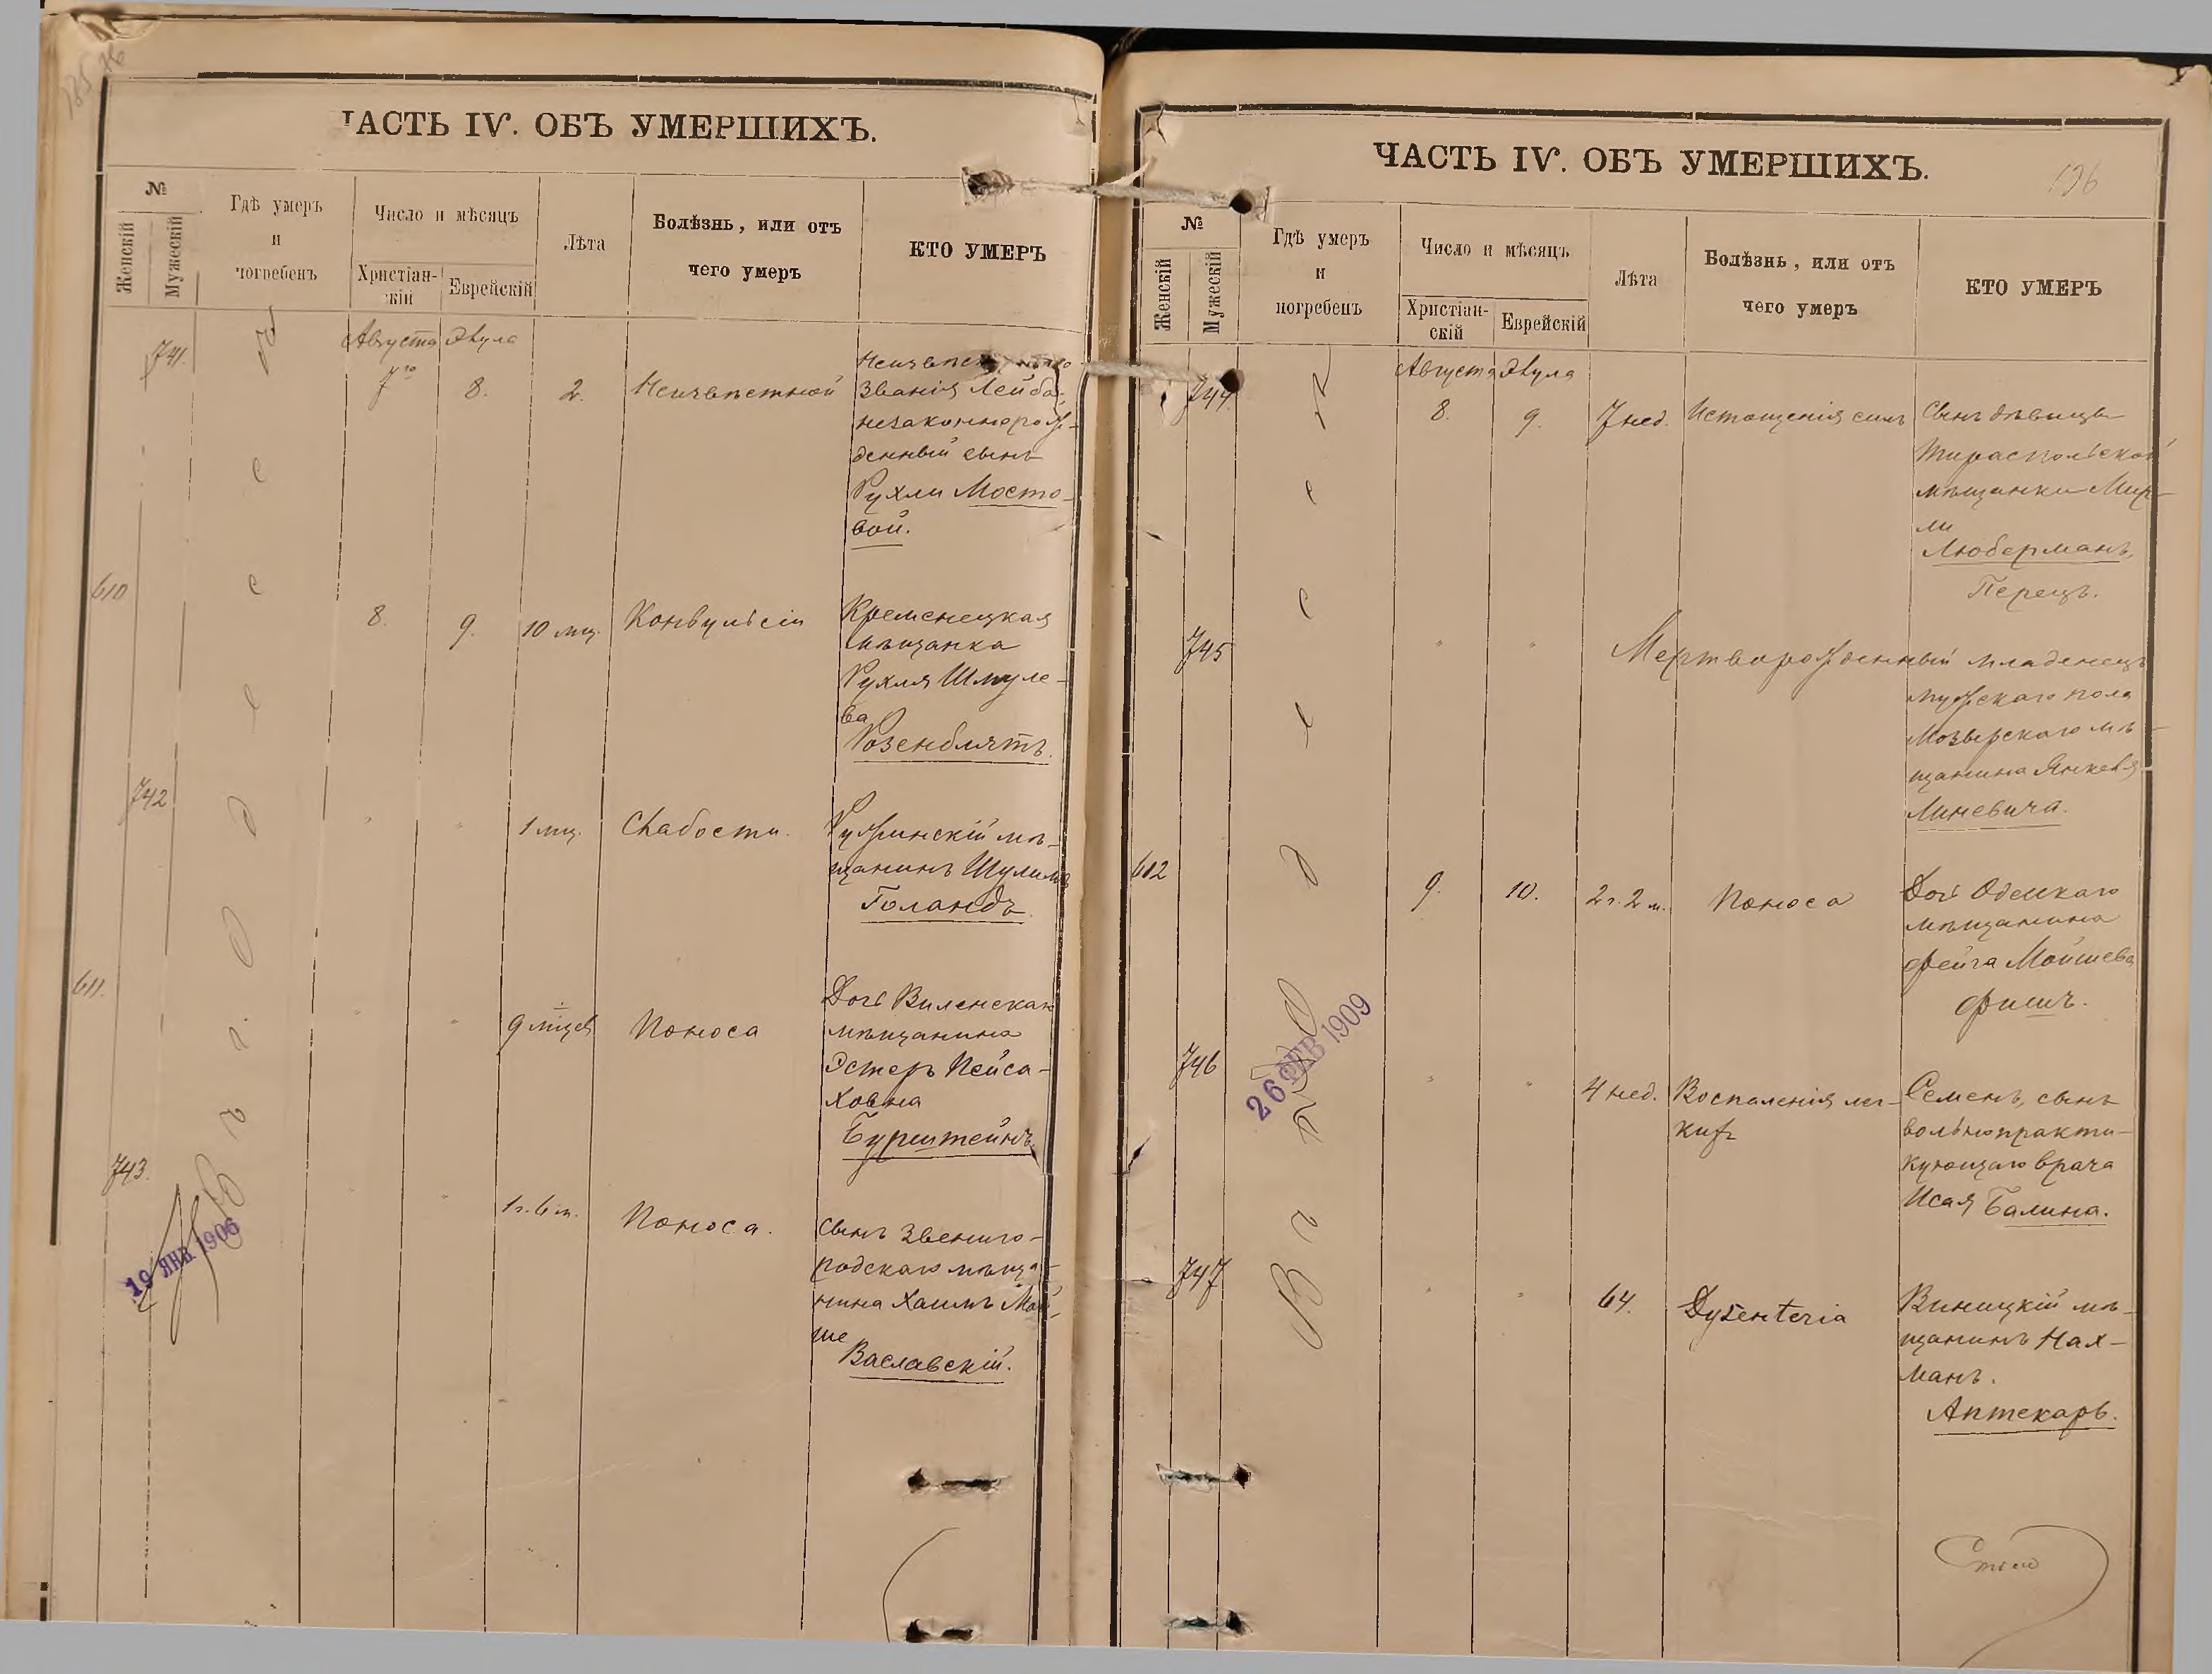 ЧАСТЬ IV. ОБЪ УМЕРШИХЪ.
№
Женскій
Мужескій
Гдѣ умеръ
и
погребенъ
Число и мѣсяцъ
Христіан-
скій
Еврейскій
Лѣта
Болѣзнь, или отъ
чего умеръ
КТО УМЕРЪ
741.
Августа Элула
7го 8. 2. Неизвѣстной
званія Лейба,
незаконнорож-
денный сынъ
Рухли Мосто-
вой.
610
8. 9. 10 мц. Конвульсіи
Кременецкая
мѣщанка
Рухля Шмуле-
ва
Розенблятъ.
742
" " 1 мц. Слабости.
Ружинскій мѣ-
щанинъ Шулимъ
Голандъ.
611.
" " 9 мцев Поноса
Дочь Виленскаго
мѣщанина
Эстеръ Пейса-
ховна
Бурштейнъ.
743.
" " 1 г. 6 м. Поноса.
Сынъ Звениго-
родскаго мѣща-
нина Хаимъ Мой-
ше
Ваславскій.
19 ЯНВ 1906
ЧАСТЬ IV. ОБЪ УМЕРШИХЪ.
196
№
Женскій
Мужескій
Гдѣ умеръ
и
погребенъ
Число и мѣсяцъ
Христіан-
скій
Еврейскій
Лѣта
Болѣзнь, или отъ
чего умеръ
КТО УМЕРЪ
744.
Августа Элула
8. 9. 7 нед. Истощенія силъ
Сынъ дѣвицы
Тираспольской
мѣщанки Мир-
ли
Люберманъ,
Перецъ.
745
" " Мертворожденный младенецъ
мужскаго пола
Мозырскаго мѣ-
щанина Янкеля
Линевича.
612
9. 10. 2 г. 2 м. Поноса
Дочь Одесскаго
мѣщанина
Фейга Мойшева
Фишъ.
746
" " 4 нед. Воспаленія лег-
кихъ
Семенъ, сынъ
вольнопракти-
кующаго врача
Исая Балина.
747
" " 64. Dysenteria
Виницкій мѣ-
щанинъ Нах-
манъ.
Аптекарь.
26 ФЕВ 1909